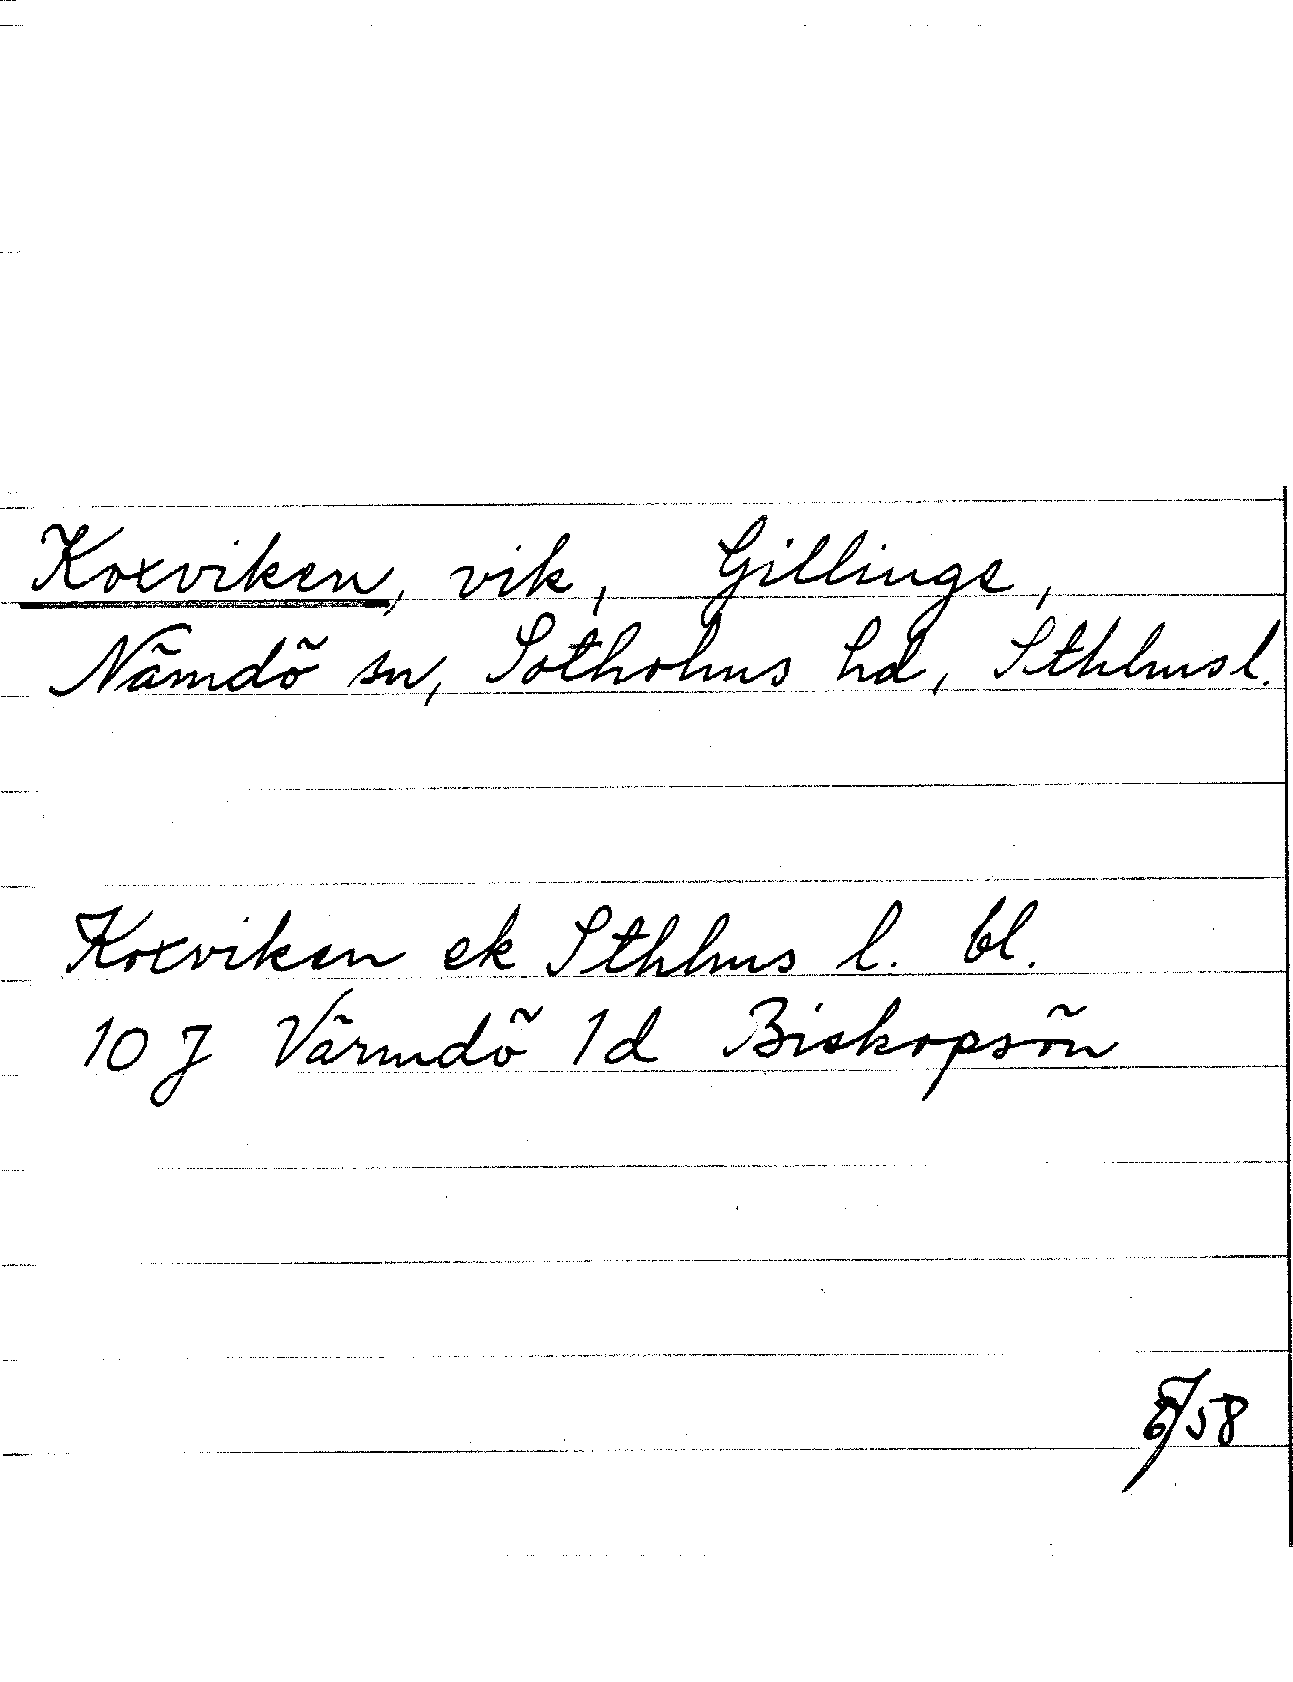 Koxviken, vik, Gillinge,
Nämdö sn, Sotholms hd, Sthlmsl.
Koxviken ek Sthlms l. bl.
10 J Värmdö 1d Biskopsön
/58